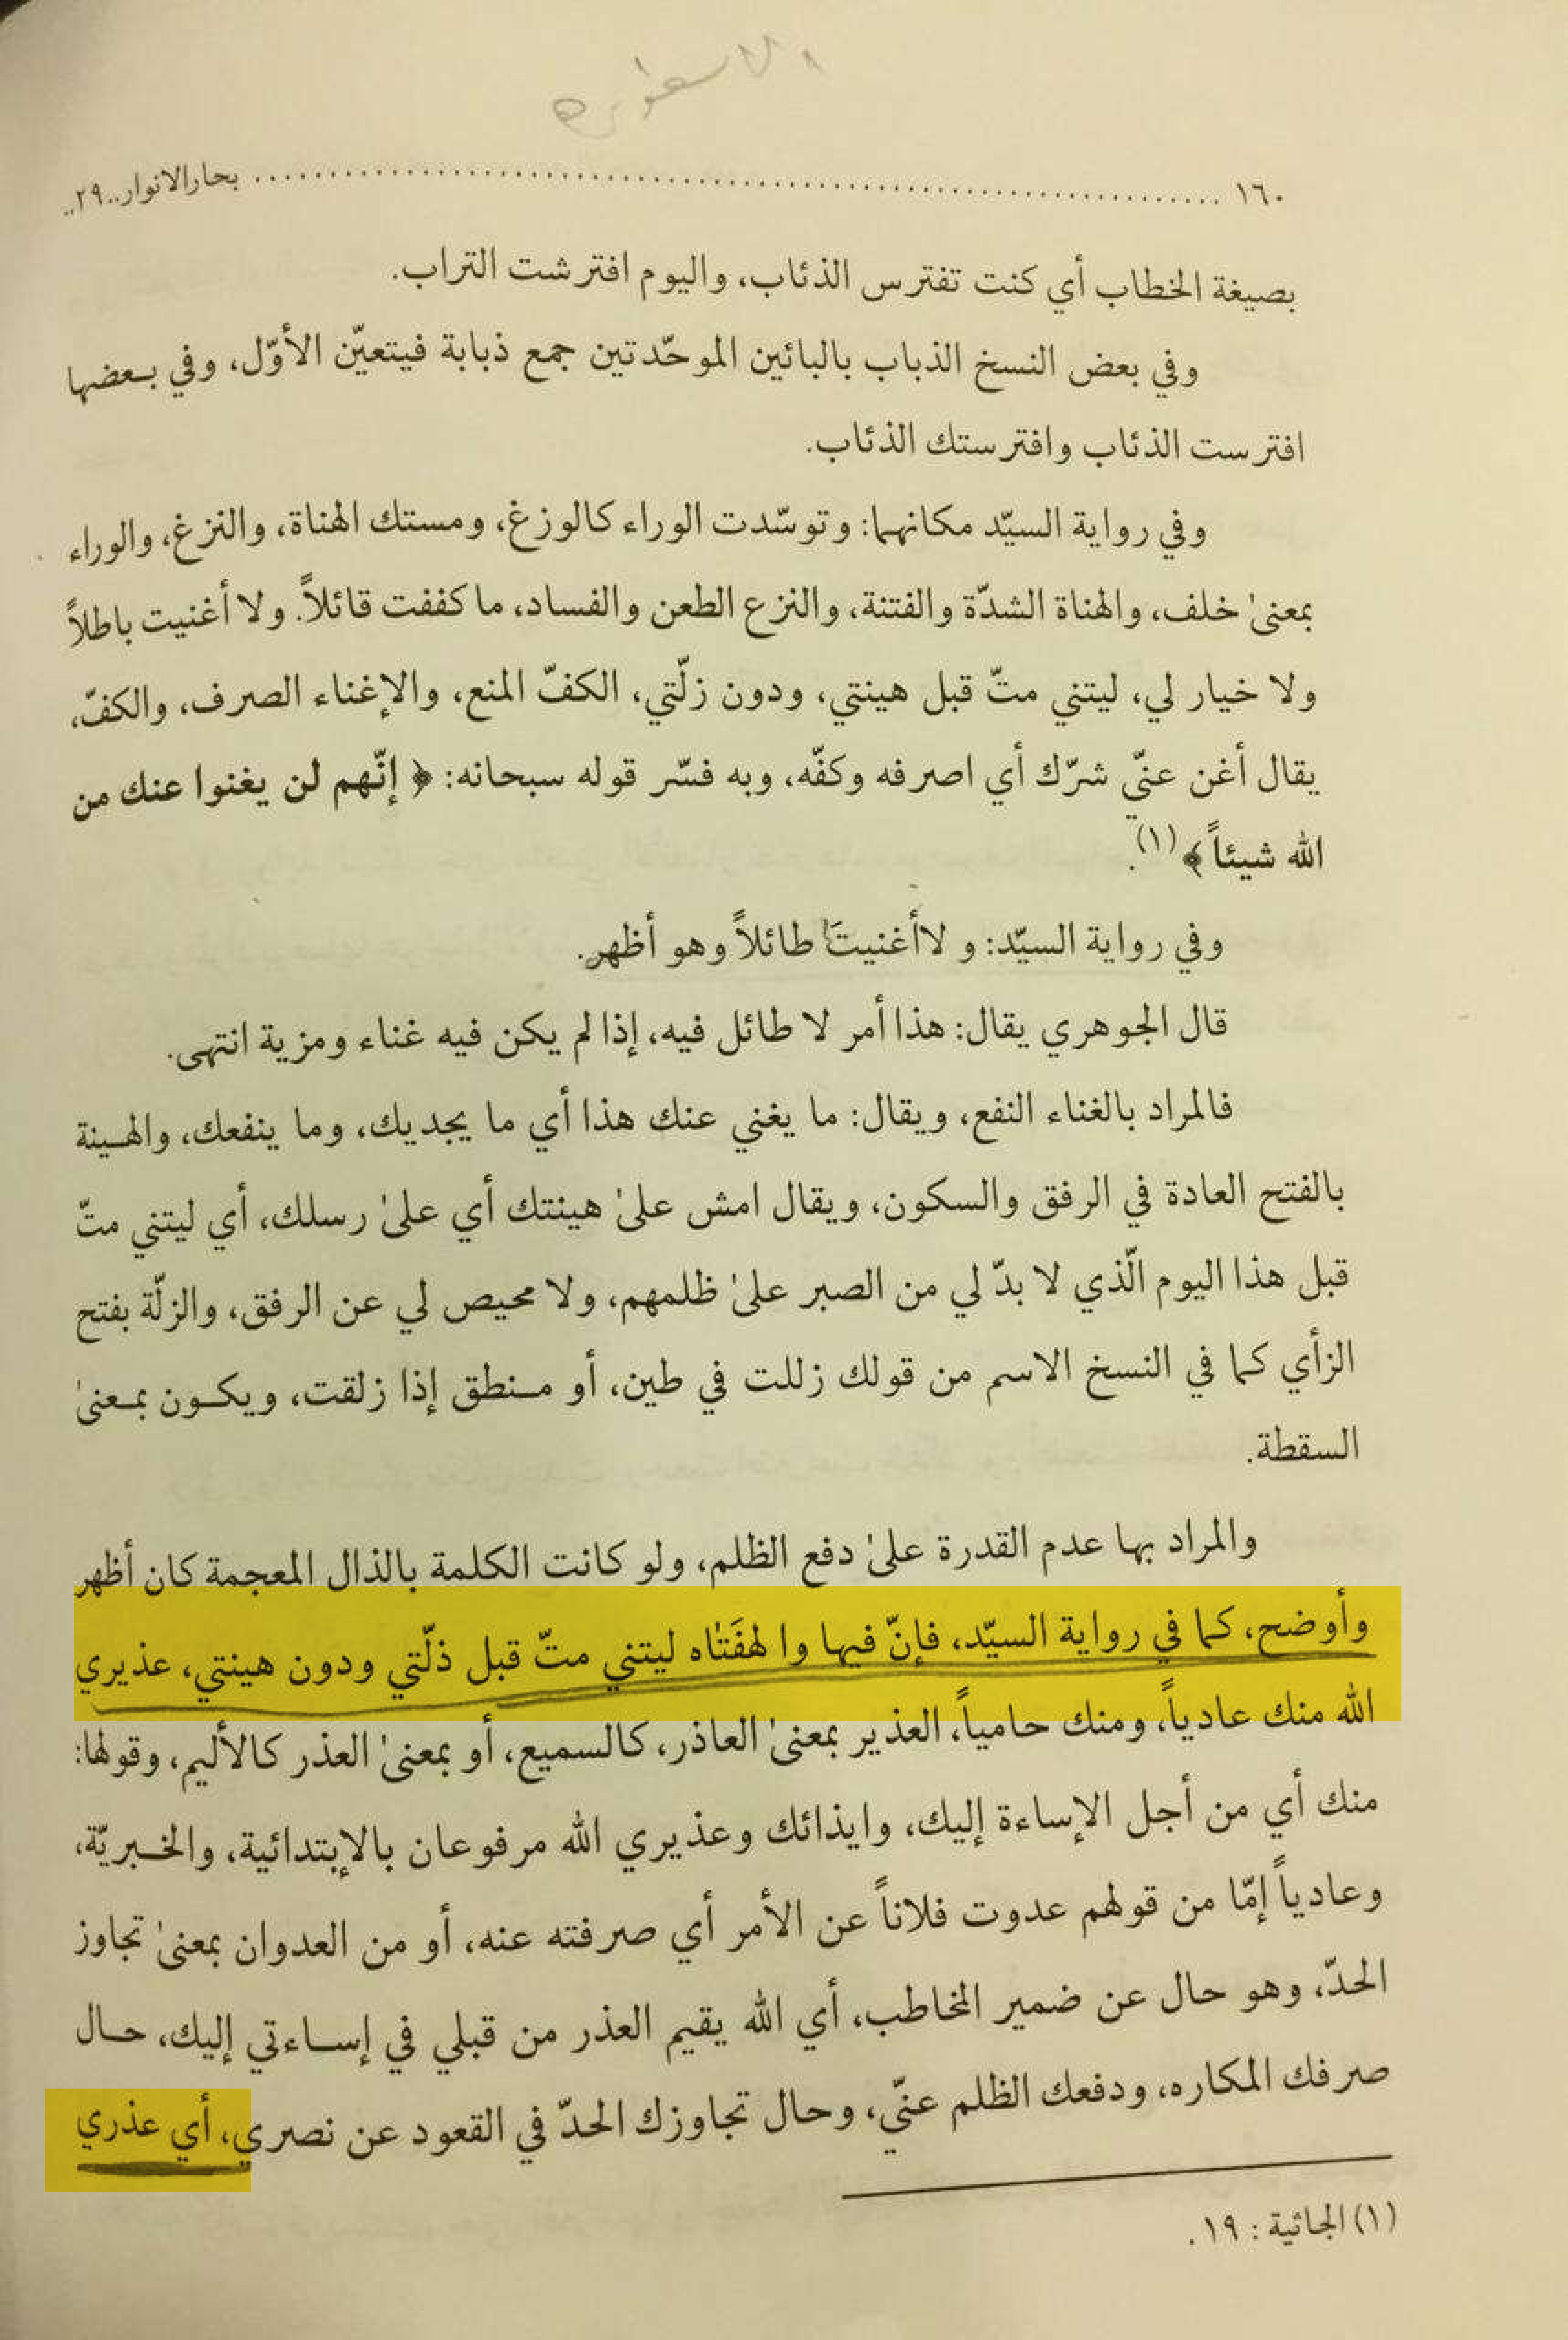 ١٦٠ ........................................ بحارالانوار..٢٩..
بصيغة الخطاب أي كنت تفترس الذئاب، واليوم افترشت التراب.
وفي بعض النسخ الذباب بالبائين الموحّدتين جمع ذبابة فيتعيّن الأوّل، وفي بـعضها
افترست الذئاب وافترستك الذئاب.
وفي رواية السيّد مكانهما: وتوسّدت الوراء كالوزغ، ومستك الهناة، والنزغ، والوراء
بمعنىٰ خلف، والهناة الشدّة والفتنة، والنزع الطعن والفساد، ما كففت قائلاً. ولا أغنيت باطلاً
ولا خيار لي، ليتني متّ قبل هينتي، ودون زلّتي، الكفّ المنع، والإغناء الصرف، والكفّ،
يقال أغن عنّي شرّك أي اصرفه وكفّه، وبه فسّر قوله سبحانه: ﴿ إنّهم لن يغنوا عنك من
الله شيئاً ﴾(١).
وفي رواية السيّد: و لاأغنيتَ طائلاً وهو أظهر.
قال الجوهري يقال: هذا أمر لا طائل فيه، إذا لم يكن فيه غناء ومزية انتهى.
فالمراد بالغناء النفع، ويقال: ما يغني عنك هذا أي ما يجديك، وما ينفعك، والهـينة
بالفتح العادة في الرفق والسكون، ويقال امش علىٰ هينتك أي علىٰ رسلك، أي ليتني متّ
قبل هذا اليوم الّذي لا بدّ لي من الصبر علىٰ ظلمهم، ولا محيص لي عن الرفق، والزلّة بفتح
الزأي كما في النسخ الاسم من قولك زللت في طين، أو مـنطق إذا زلقت، ويكـون بمـعنىٰ
السقطة.
والمراد بها عدم القدرة علىٰ دفع الظلم، ولو كانت الكلمة بالذال المعجمة كان أظهر
وأوضح، كما في رواية السيّد، فإنّ فيها وا لهفَتٰاه ليتني متّ قبل ذلّتي ودون هينتي، عذيري
الله منك عادياً، ومنك حامياً، العذير بمعنىٰ العاذر، كالسميع، أو بمعنىٰ العذر كالأليم، وقولها:
منك أي من أجل الإساءة إليك، وايذائك وعذيري الله مرفوعان بالإبتدائية، والخـبريّة،
وعادياً إمّا من قولهم عدوت فلاناً عن الأمر أي صرفته عنه، أو من العدوان بمعنىٰ تجاوز
الحدّ، وهو حال عن ضمير المخاطب، أي الله يقيم العذر من قبلي في إسـاءتي إليك، حـال
صرفك المكاره، ودفعك الظلم عنّي، وحال تجاوزك الحدّ في القعود عن نصري، أي عذري
(١) الجاثية : ١٩ .